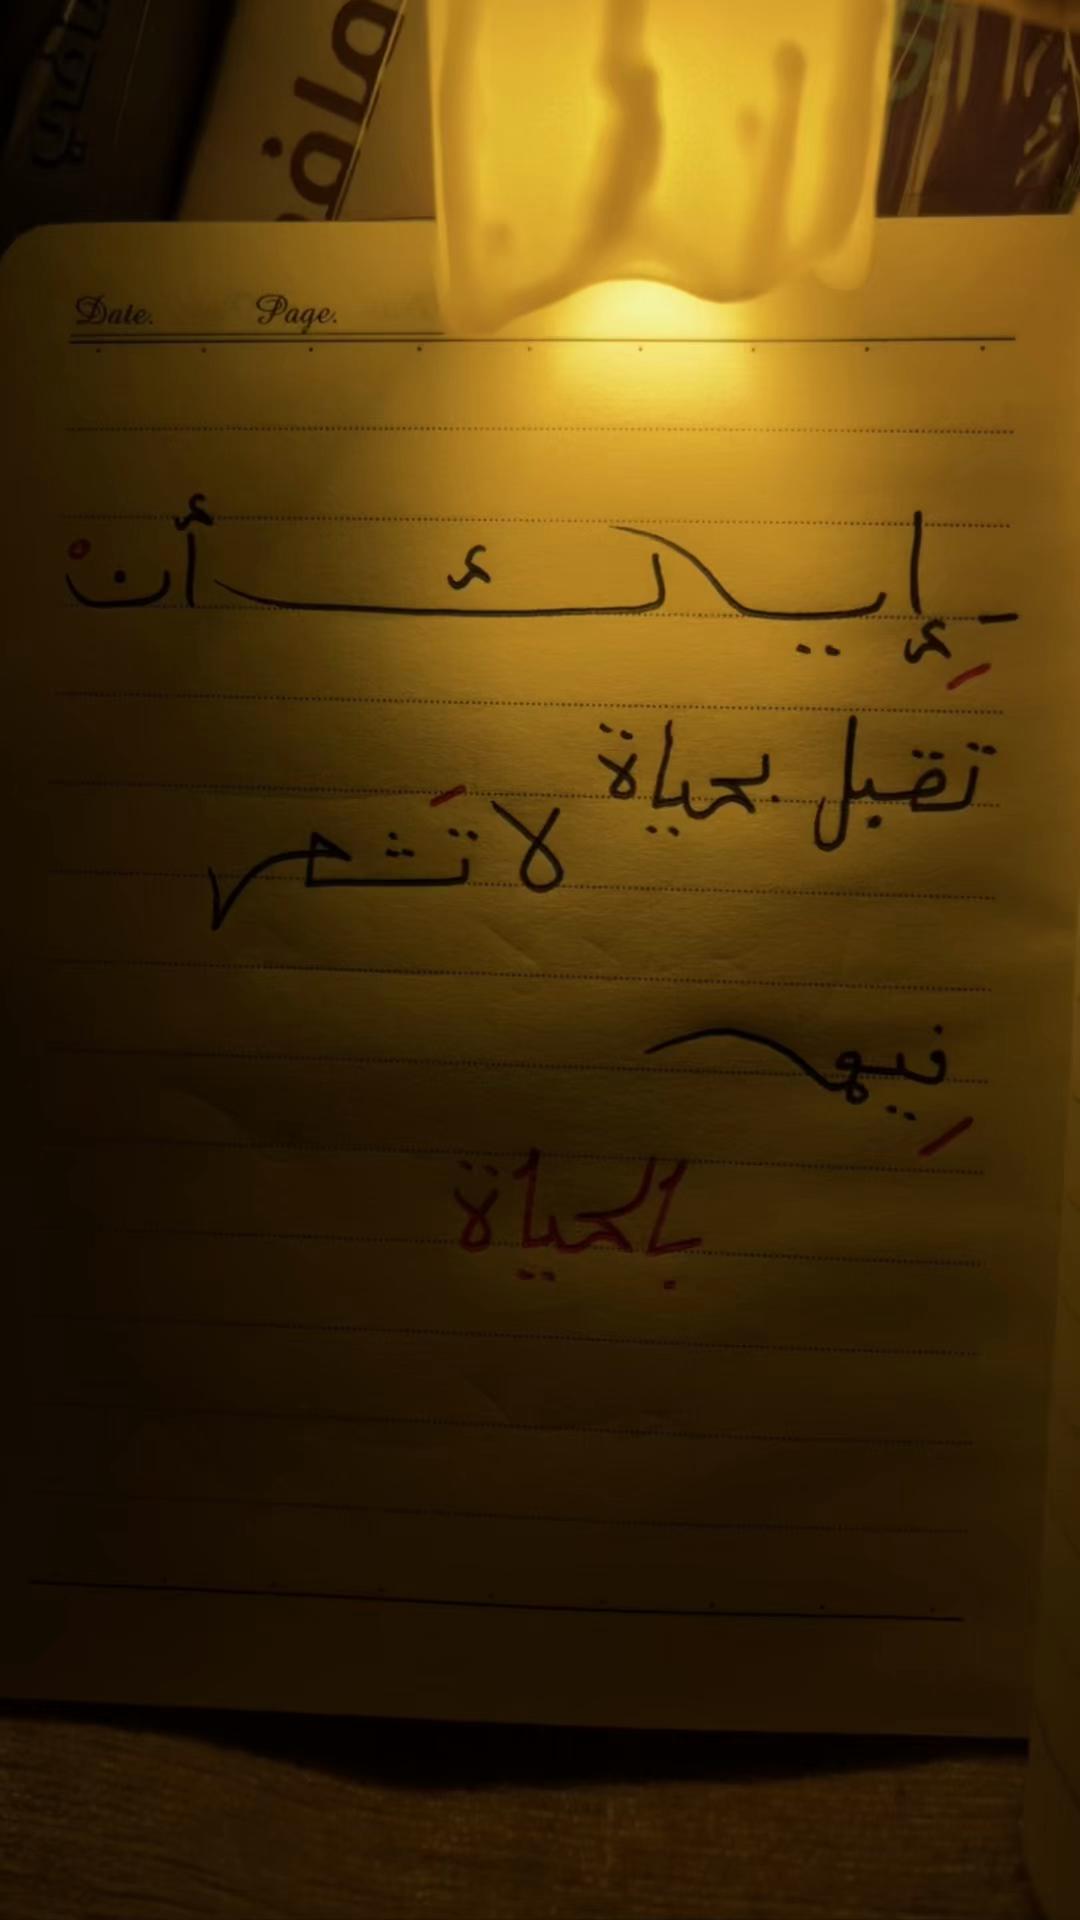 Date. Page.
- إِياك أنْ
تقبل بحياة
لا تَشعر
فِيها
بالحياة